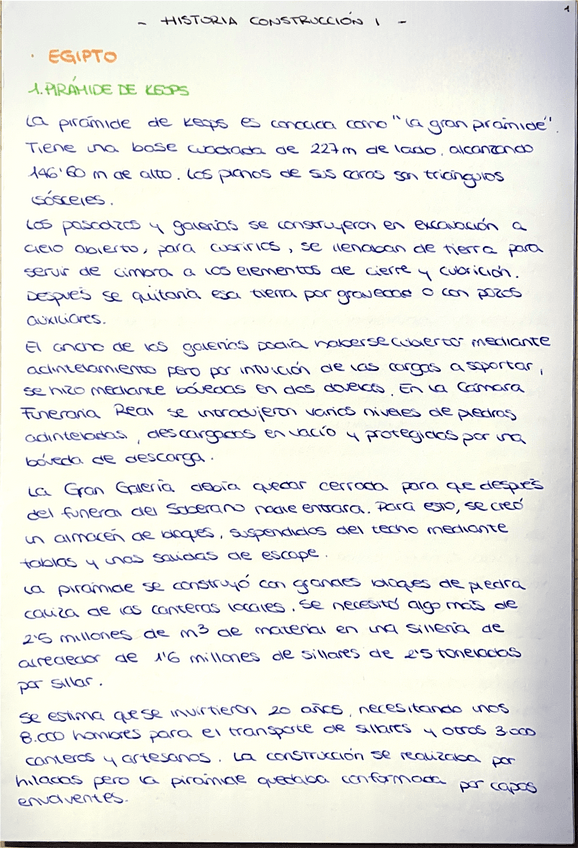 1
- HISTORIA CONSTRUCCIÓN 1 -
· EGIPTO
1. PIRÁMIDE DE KEOPS
La pirámide de Keops es conocida como "la gran pirámide".
Tiene una base cuadrada de 227m de lado, alcanzando
146'60 m de alto. Los planos de sus caras son triángulos
isósceles.
Los pasadizos y galerías se construyeron en excavación a
cielo abierto, para cubrirlos, se llenaban de tierra para
servir de cimbra a los elementos de cierre y cubrición.
Después se quitaría esa tierra por gravedad o con pozos
auxiliares.
El ancho de las galerías podía haberse cubierto mediante
adintelamiento pero por intuición de las cargas a soportar,
se hizo mediante bóvedas en dos dovelas. En la Cámara
Funeraria Real se introdujeron varios niveles de piedras
adinteladas, descargados en vacío y protegidos por una
bóveda de descarga.
La Gran Galería debía quedar cerrada para que después
del funeral del Soberano nadie entrara. Para esto, se creó
un almacén de bloques, suspendidos del techo mediante
tablas y unas salidas de escape.
La pirámide se construyó con grandes bloques de piedra
caliza de las canteras locales. Se necesitó algo más de
2'5 millones de m³ de material en una sillería de
alrededor de 1'6 millones de sillares de 2'5 toneladas
por sillar.
Se estima que se invirtieron 20 años, necesitando unos
8.000 hombres para el transporte de sillares y otros 3.000
canteros y artesanos. La construcción se realizaba por
hiladas pero la pirámide quedaba conformada por capas
envolventes.